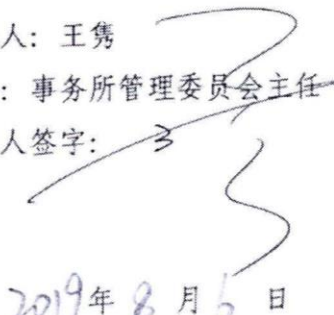 人：王隽
：事务所管理委员会主任
人签字：
2019年8月6日